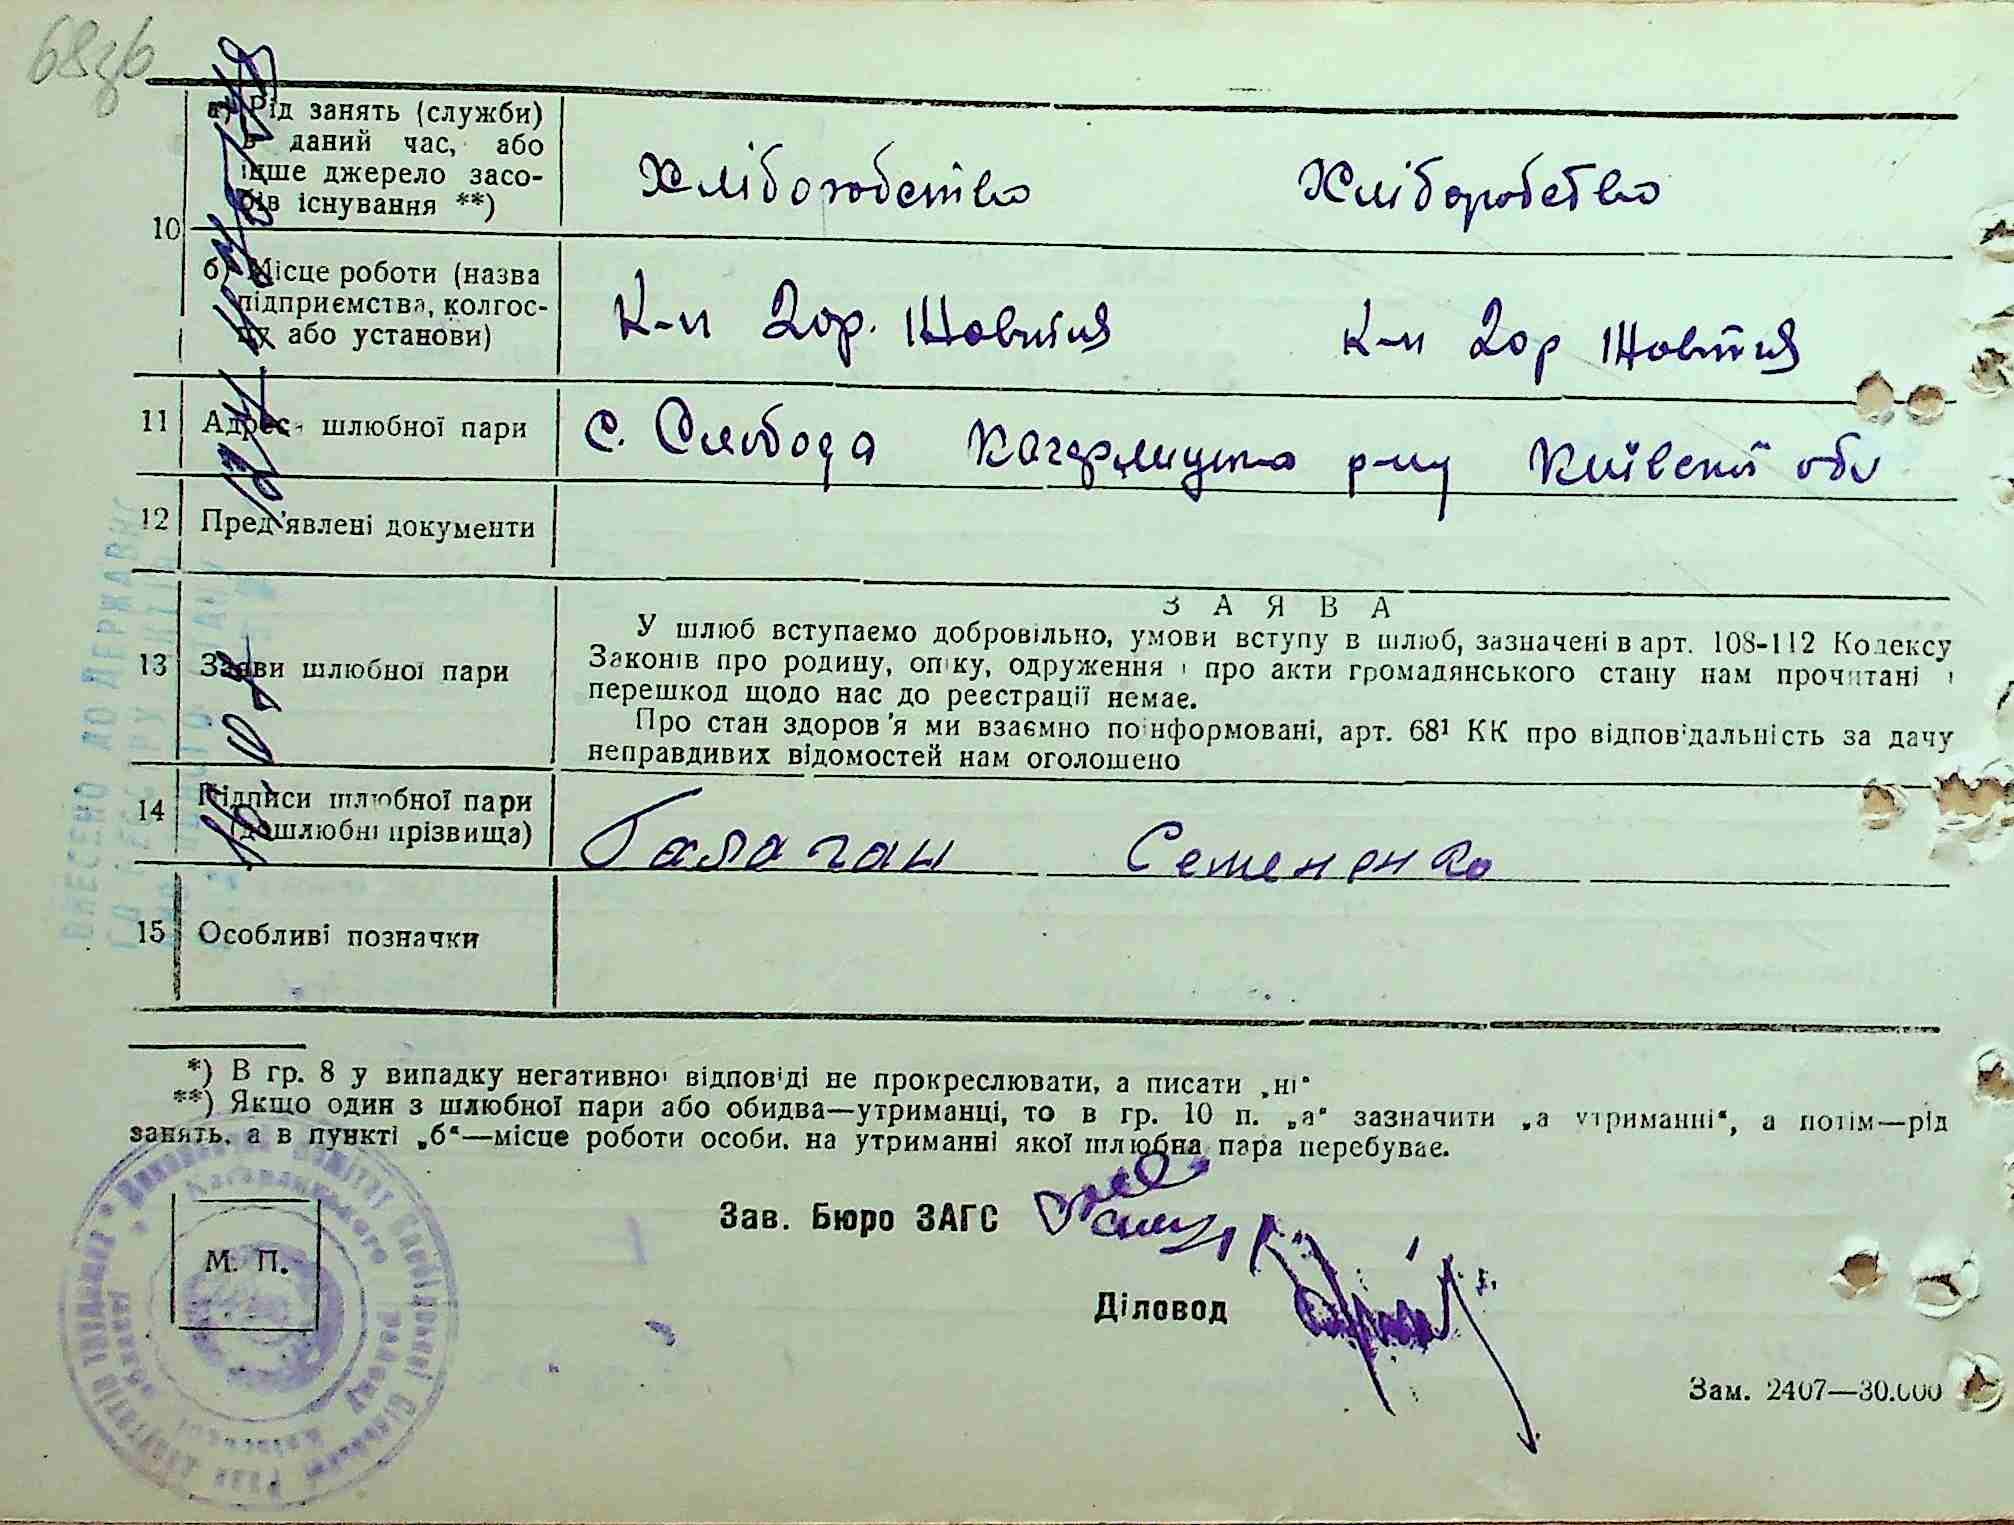 68зв
10
а) Рід занять (служби)
в даний час, або
інше джерело засо-
бів існування **)
Хліборобство Хліборобство
б) Місце роботи (назва
підприємства, колгос-
пу або установи)
К-п Зор. Жовтня К-п Зор Жовтня
11 Адреса шлюбної пари
с. Слобода Кагарлицько р-ну Київської обл
12 Пред'явлені документи
13 Заяви шлюбної пари
ЗАЯВА
У шлюб вступаємо добровільно, умови вступу в шлюб, зазначені в арт. 108-112 Кодексу
Законів про родину, опіку, одруження і про акти громадянського стану нам прочитані і
перешкод щодо нас до реєстрації немає.
Про стан здоров'я ми взаємно поінформовані, арт. 68¹ КК про відповідальність за дачу
неправдивих відомостей нам оголошено
14 Підписи шлюбної пари
(дошлюбні прізвища)
Галаган Семененко
15 Особливі позначки
*) В гр. 8 у випадку негативної відповіді не прокреслювати, а писати „ні"
**) Якщо один з шлюбної пари або обидва—утриманці, то в гр. 10 п. „а" зазначити „а утриманні", а потім—рід
занять, а в пункті „б"—місце роботи особи, на утриманні якої шлюбна пара перебуває.
Зав. Бюро ЗАГС
М. П.
Діловод
Зам. 2407—30.000
ВНЕСЕНО ДО ДЕРЖАВНОГО